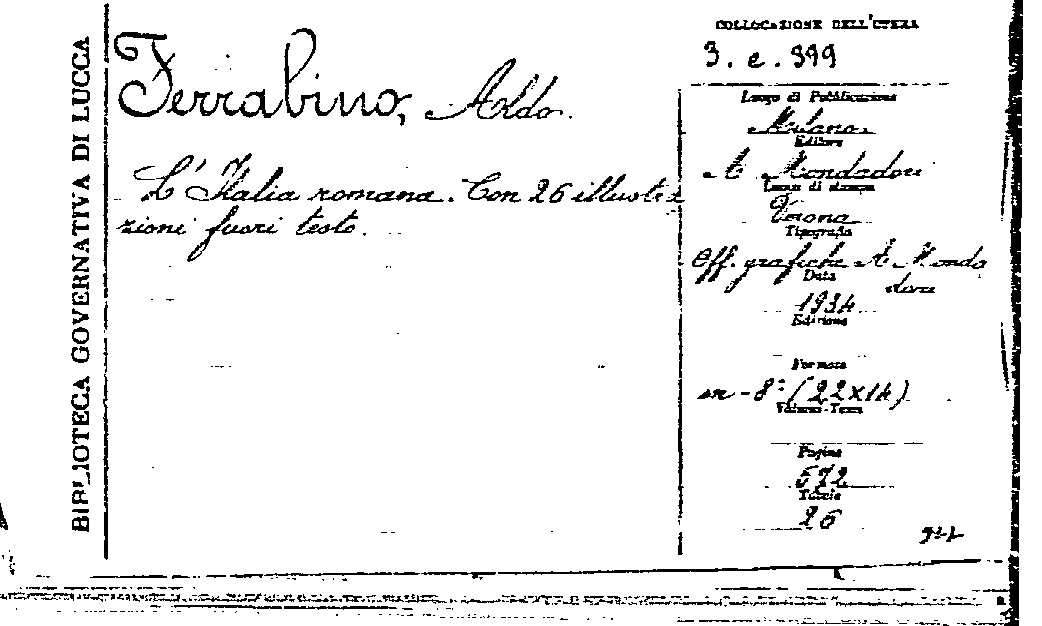 BIBLIOTECA GOVERNATIVA DI LUCCA
Ferrabino, Aldo.
L'Italia romana. Con 26 illustra
zioni fuori testo.
COLLOCAZIONE DELL'OPERA
3. e. 399
Luogo di Pubblicazione
Milano.
Editore
A Mondadori
Luogo di stampa
Verona
Tipografia
Off. grafiche A. Monda
dori
Data
1934
Edizione
Formato
in-8° (22x14)
Volume-Tomo
Pagine
572
Tavole
26